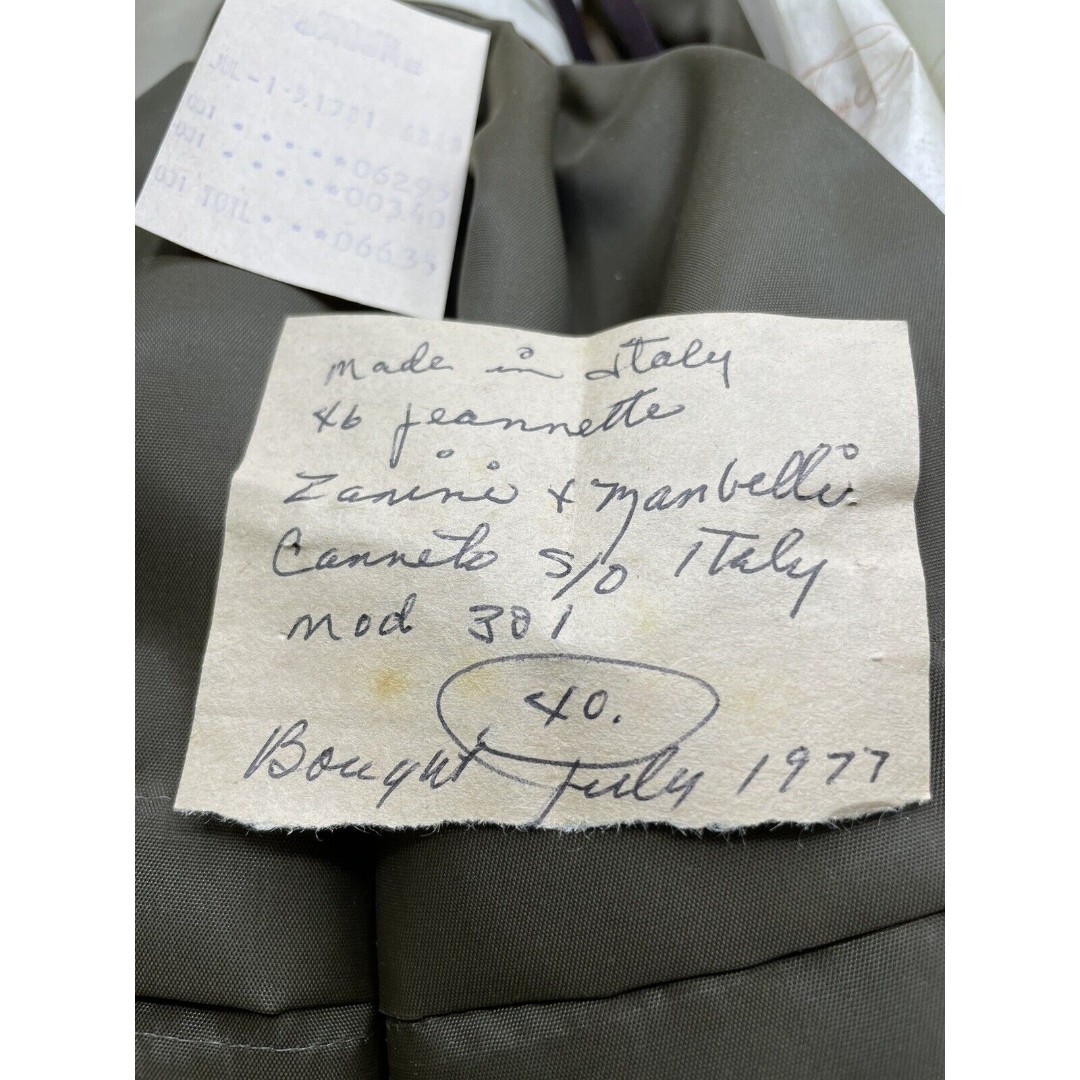 JUL-1-9.1981
001 • • • • • *06295
001 • • • • • *00340
001 TOTL • • • *06635
made in Italy
46 jeannette
Zanini + Mambelli
Canneto S/O Italy
mod 301
40.
Bought July 1977